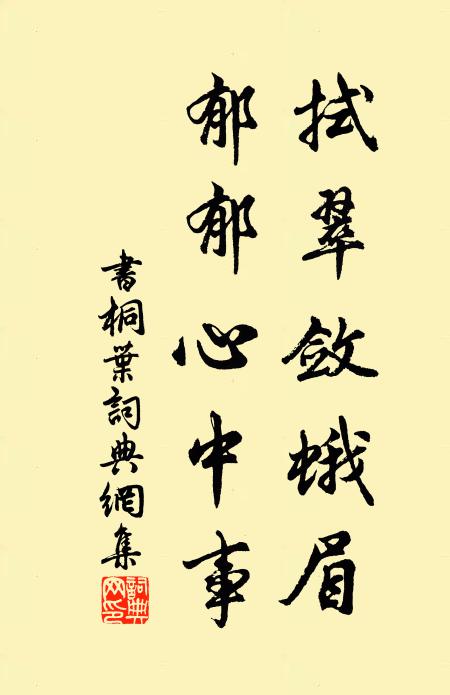 拭翠斂蛾眉
郁郁心中事
書桐葉詞典網集
詞典網印